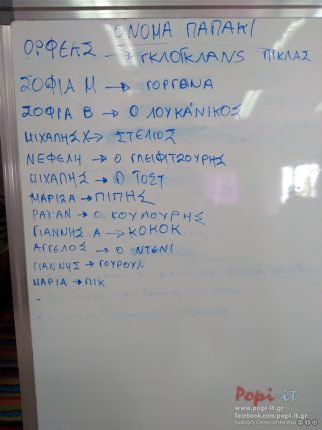 ΟΝΟΜΑ ΠΑΠΑΚΙ
ΟΡΦΕΑΣ → ΓΚΛΟΓΚΛΑΝS ΠΙΚΛΑΣ
ΣΟΦΙΑ Μ → ΓΟΡΓΟΝΑ
ΣΟΦΙΑ Β → Ο ΛΟΥΚΑΝΙΚΟΣ
ΜΙΧΑΛΗΣ Χ → ΣΤΕΛΙΟΣ
ΝΕΦΕΛΗ → Ο ΓΛΕΙΦΙΤΖΟΥΡΗΣ
ΜΙΧΑΛΗΣ → Ο ΤΟΣΤ
ΜΑΡΙΖΑ → ΠΙΠΗΣ
ΡΑΫΑΝ → Ο ΚΟΥΛΟΥΡΗΣ
ΓΙΑΝΝΗΣ Α → ΚΟΚΟΚ
ΑΓΓΕΛΟΣ → Ο ΝΤΕΝΙ
ΓΙΑΝΝΗΣ → ΓΟΥΡΟΥΝ
ΜΑΡΙΑ → ΠΙΚ
Popi it
www.popi-it.gr
facebook.com/popi.it.gr